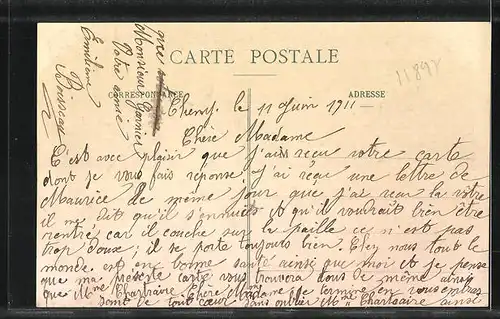 CARTE POSTALE
CORRESPONDANCE
ADRESSE
11898
le 11 Juin 1911
Chère Madame
C'est avec plaisir que j'ai reçu votre carte
dont je vous fais réponse J'ai reçu une lettre de
Maurice de même jour que j'ai reçu la votre
il me dit qu'il s'ennuie et qu'il voudrait bien être
rentré car il couche sur la paille ce n'est pas
trop doux; il se porte toujours bien. Chez nous tout le
monde est en bonne santé ainsi que moi et je pense
que ma présente carte vous trouvera tous de même ainsi
que Mme Chartraire Chère Madame je termine en vous embras
sant de tout cœur sans oublier Mme Chartraire ainsi
que
Monsieur Garnier
Votre amie
Emilienne
Boisseau